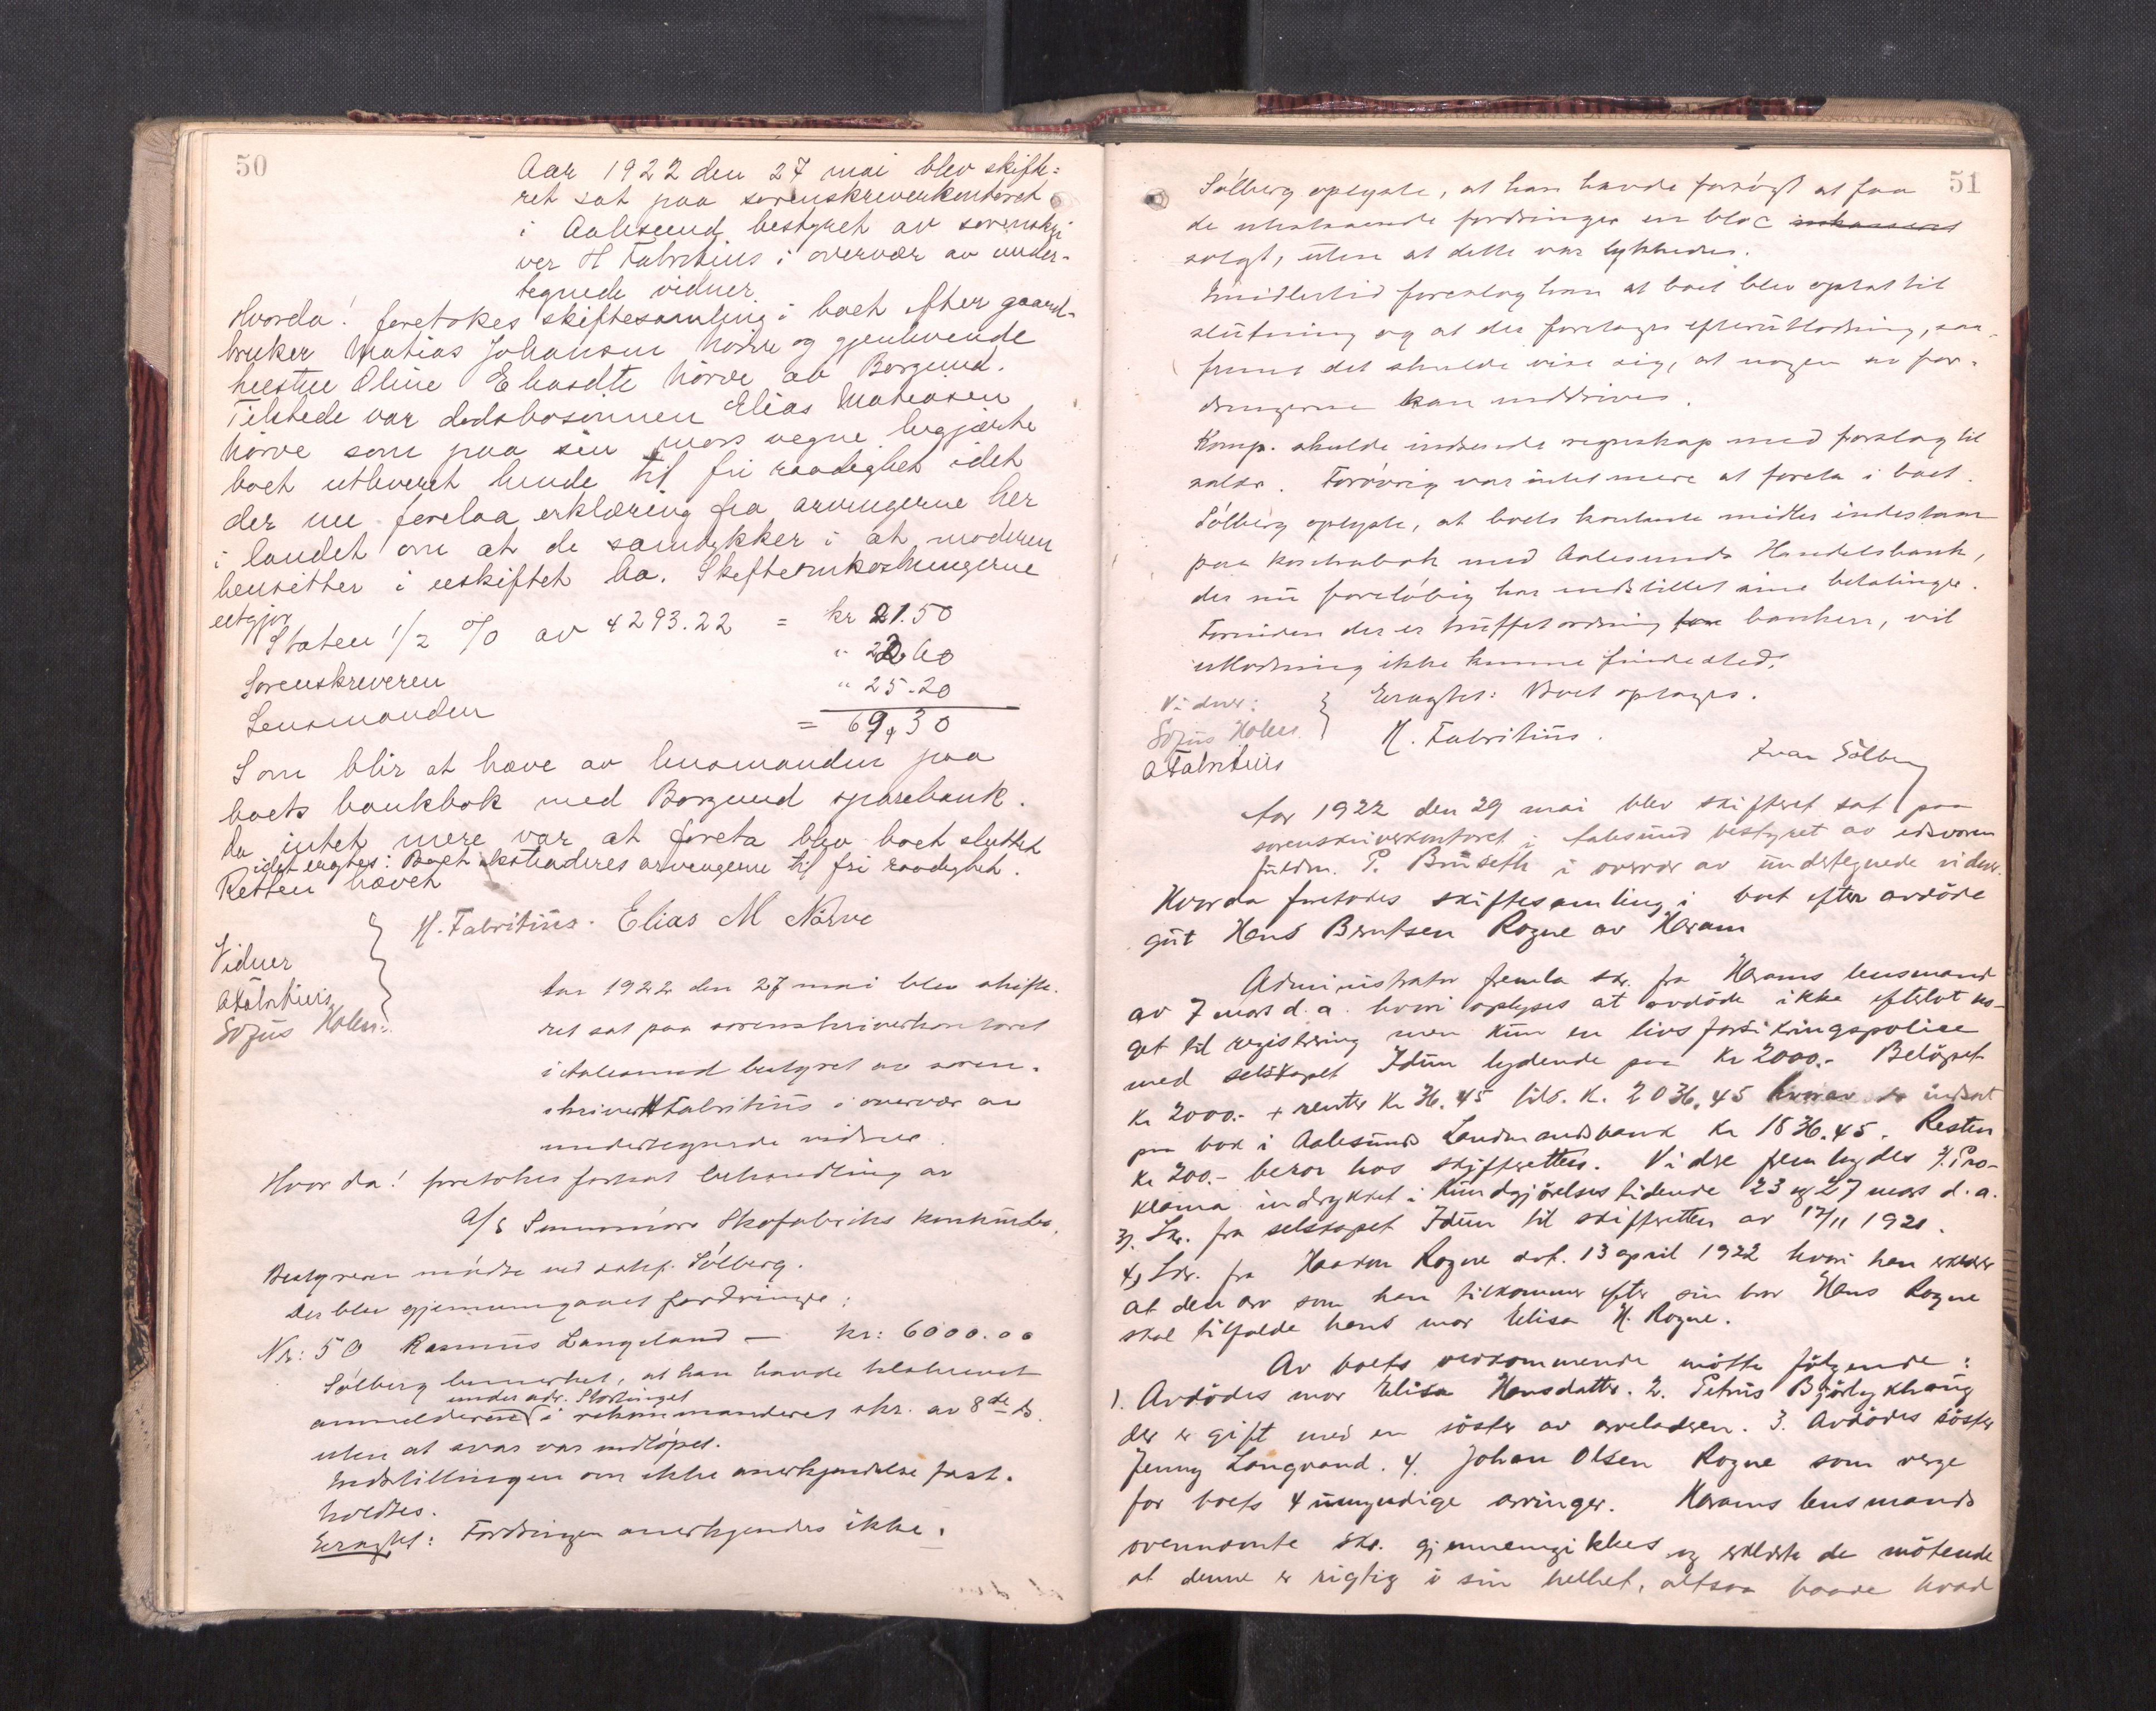 50
Aar 1922 den 27 mai blev skifte-
ret sat paa sorenskriverkontoret
i Aalesund bestyret av sorenskri
ver H Fabritius i overvær av under-
tegnede vidner
Hvorda! foretokes skiftesamling i boet efter gaard-
bruker Matias Johansen Nørve og gjenlevende
hustru Oline Elisadte Nørve av Borgund.
Tilstede var dødsbosønnen Elias Matiasen
Nørve som paa sin mors vegne begjærte
boet utleveret hende til fri raadighet idet
der nu forelaa erklæring fra arvingerne her
i landet om at de samtykker i at moderen
hensitter i uskiftet bo. Skifteomkostningerne
utgjør
Staten 1/2 % av 4293.22 = kr 21.50
Sorenskriveren " 22.60
Lensmanden " 25.20
= 69,30
Som blir at hæve av lensmanden paa
boets bankbok med Borgund sparebank.
Da intet mere var at foreta blev boet sluttet
idet eragtes: Boet ekstraderes arvingerne til fri raadighet.
Retten hævet
H. Fabritius. Elias M Nørve
Vidner
A Fabritius
Sofus Holen
Aar 1922 den 27 mai blev skifte-
ret sat paa sorenskriverkontoret
i Aalesund bestyret av soren-
skriver H Fabritius i overvær av
undertegnede vidner.
Hvor da! foretokes fortsat behandling av
A/S Sunnmøre Skofabriks konkursbo.
Bestyreren mødte ved sakf. Sølberg.
Der blev gjennemgaaet fordringer:
Nr: 50 Rasmus Langeland — kr: 6000.00
Sølberg bemerket, at han havde tilskrevet
under adr. Stortinget
anmelderen i rekommanderet skr. av 8de ds.
uten at svar var indløpet.
Indstillingen om ikke anerkjendelse fast-
holdtes.
Eragtet: Fordringen anerkjendes ikke.
51
Sølberg oplyste, at han havde forsøgt at faa
de utestaaende fordringer en bloc
solgt, uten at dette var lykkedes.
Imidlertid foreslog han at boet blev optat til
slutning og at der foretages efterutlodning, saa-
fremt det skulde vise sig, at nogen av for-
dringerne kan inddrives.
Komp. skulde indsende regnskap med forslag til
salær. Forøvrig var intet mere at foreta i boet.
Sølberg oplyste, at boets kontante midler indestaar
paa kontrabok med Aalesunds Handelsbank,
der nu foreløbig har indstillet sine betalinger.
Forinden der er truffet ordning for banken, vil
utlodning ikke kunne finde sted.
Vidner: Eragtet: Boet optages.
Sofus Holen H. Fabritius.
A Fabritius Ivar Sølberg
Aar 1922 den 29 mai blev skifteret sat paa
sorenskriverkontoret i Aalesund bestyret av edsvoren
fuldm. P. Bruseth i overvær av undertegnede vidner.
Hvorda foretodes skiftesamling i boet efter avdøde
gut Hans Berntsen Rogne av Haram
Administrator fremla skr. fra Harams lensmand
av 7 mars d.a. hvori oplyses at avdøde ikke efterlot no-
get til registrering men kun en livsforsikringspolice
med selskapet Idun lydende paa Kr 2000.- Beløpet
Kr 2000.- + renter Kr 36.45 tils. K. 2036.45 hvorav indsat
paa bok i Aalesunds Landmandsbank Kr 1836.45. Resten
Kr 200.- beror hos skifteretten. Vidre fremlydes 2. Pro-
klama indrykket i Kundgjørelsestidende 23 og 27 mars d.a.
3). Skr. fra selskapet Idun til skifteretten av 17/11 1921.
4) Skr. fra Haakon Rogne dat. 13 april 1922 hvori han erklærer
at den arv som han tilkommer efter sin bror Hans Rogne
skal tilfalde hans mor Elisa H. Rogne.
Av boets vedkommende møtte følgende:
1. Avdødes mor Elisa Hansdatter. 2. Petrus Bjørlykhaug
der er gift med en søster av arveladeren. 3. Avdødes søster
Jenny Langvand. 4. Johan Olsen Rogne som verge
for boets 4 umyndige arvinger. Harams lensmands
ovennævnte skr. gjennemgikkes og erklærte de møtende
at denne er rigtig i sin helhet, altsaa baade hvad